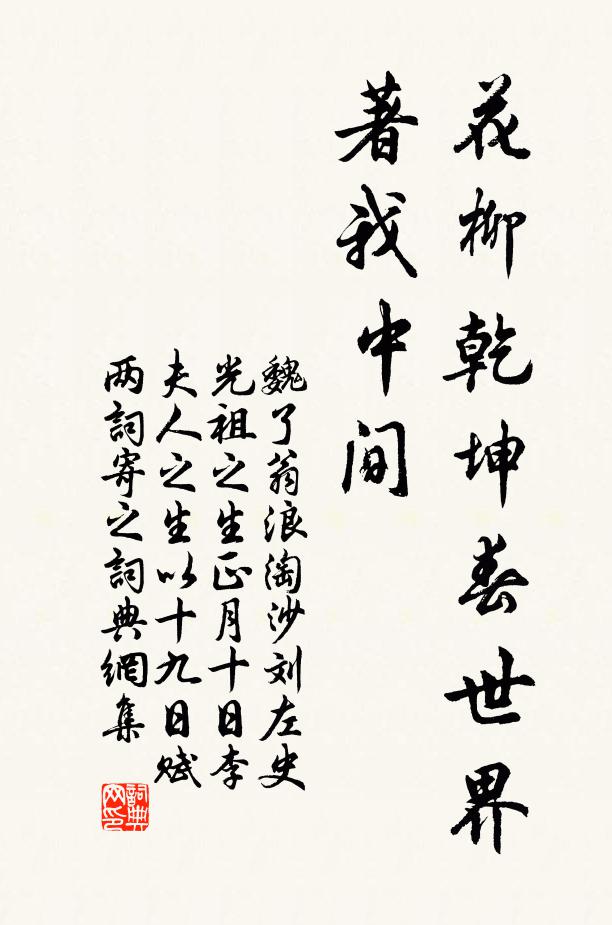 花柳乾坤春世界
著我中间
魏了翁浪淘沙刘左史
光祖之生正月十日李
夫人之生以十九日赋
两詞寄之詞典網集
詞典网印